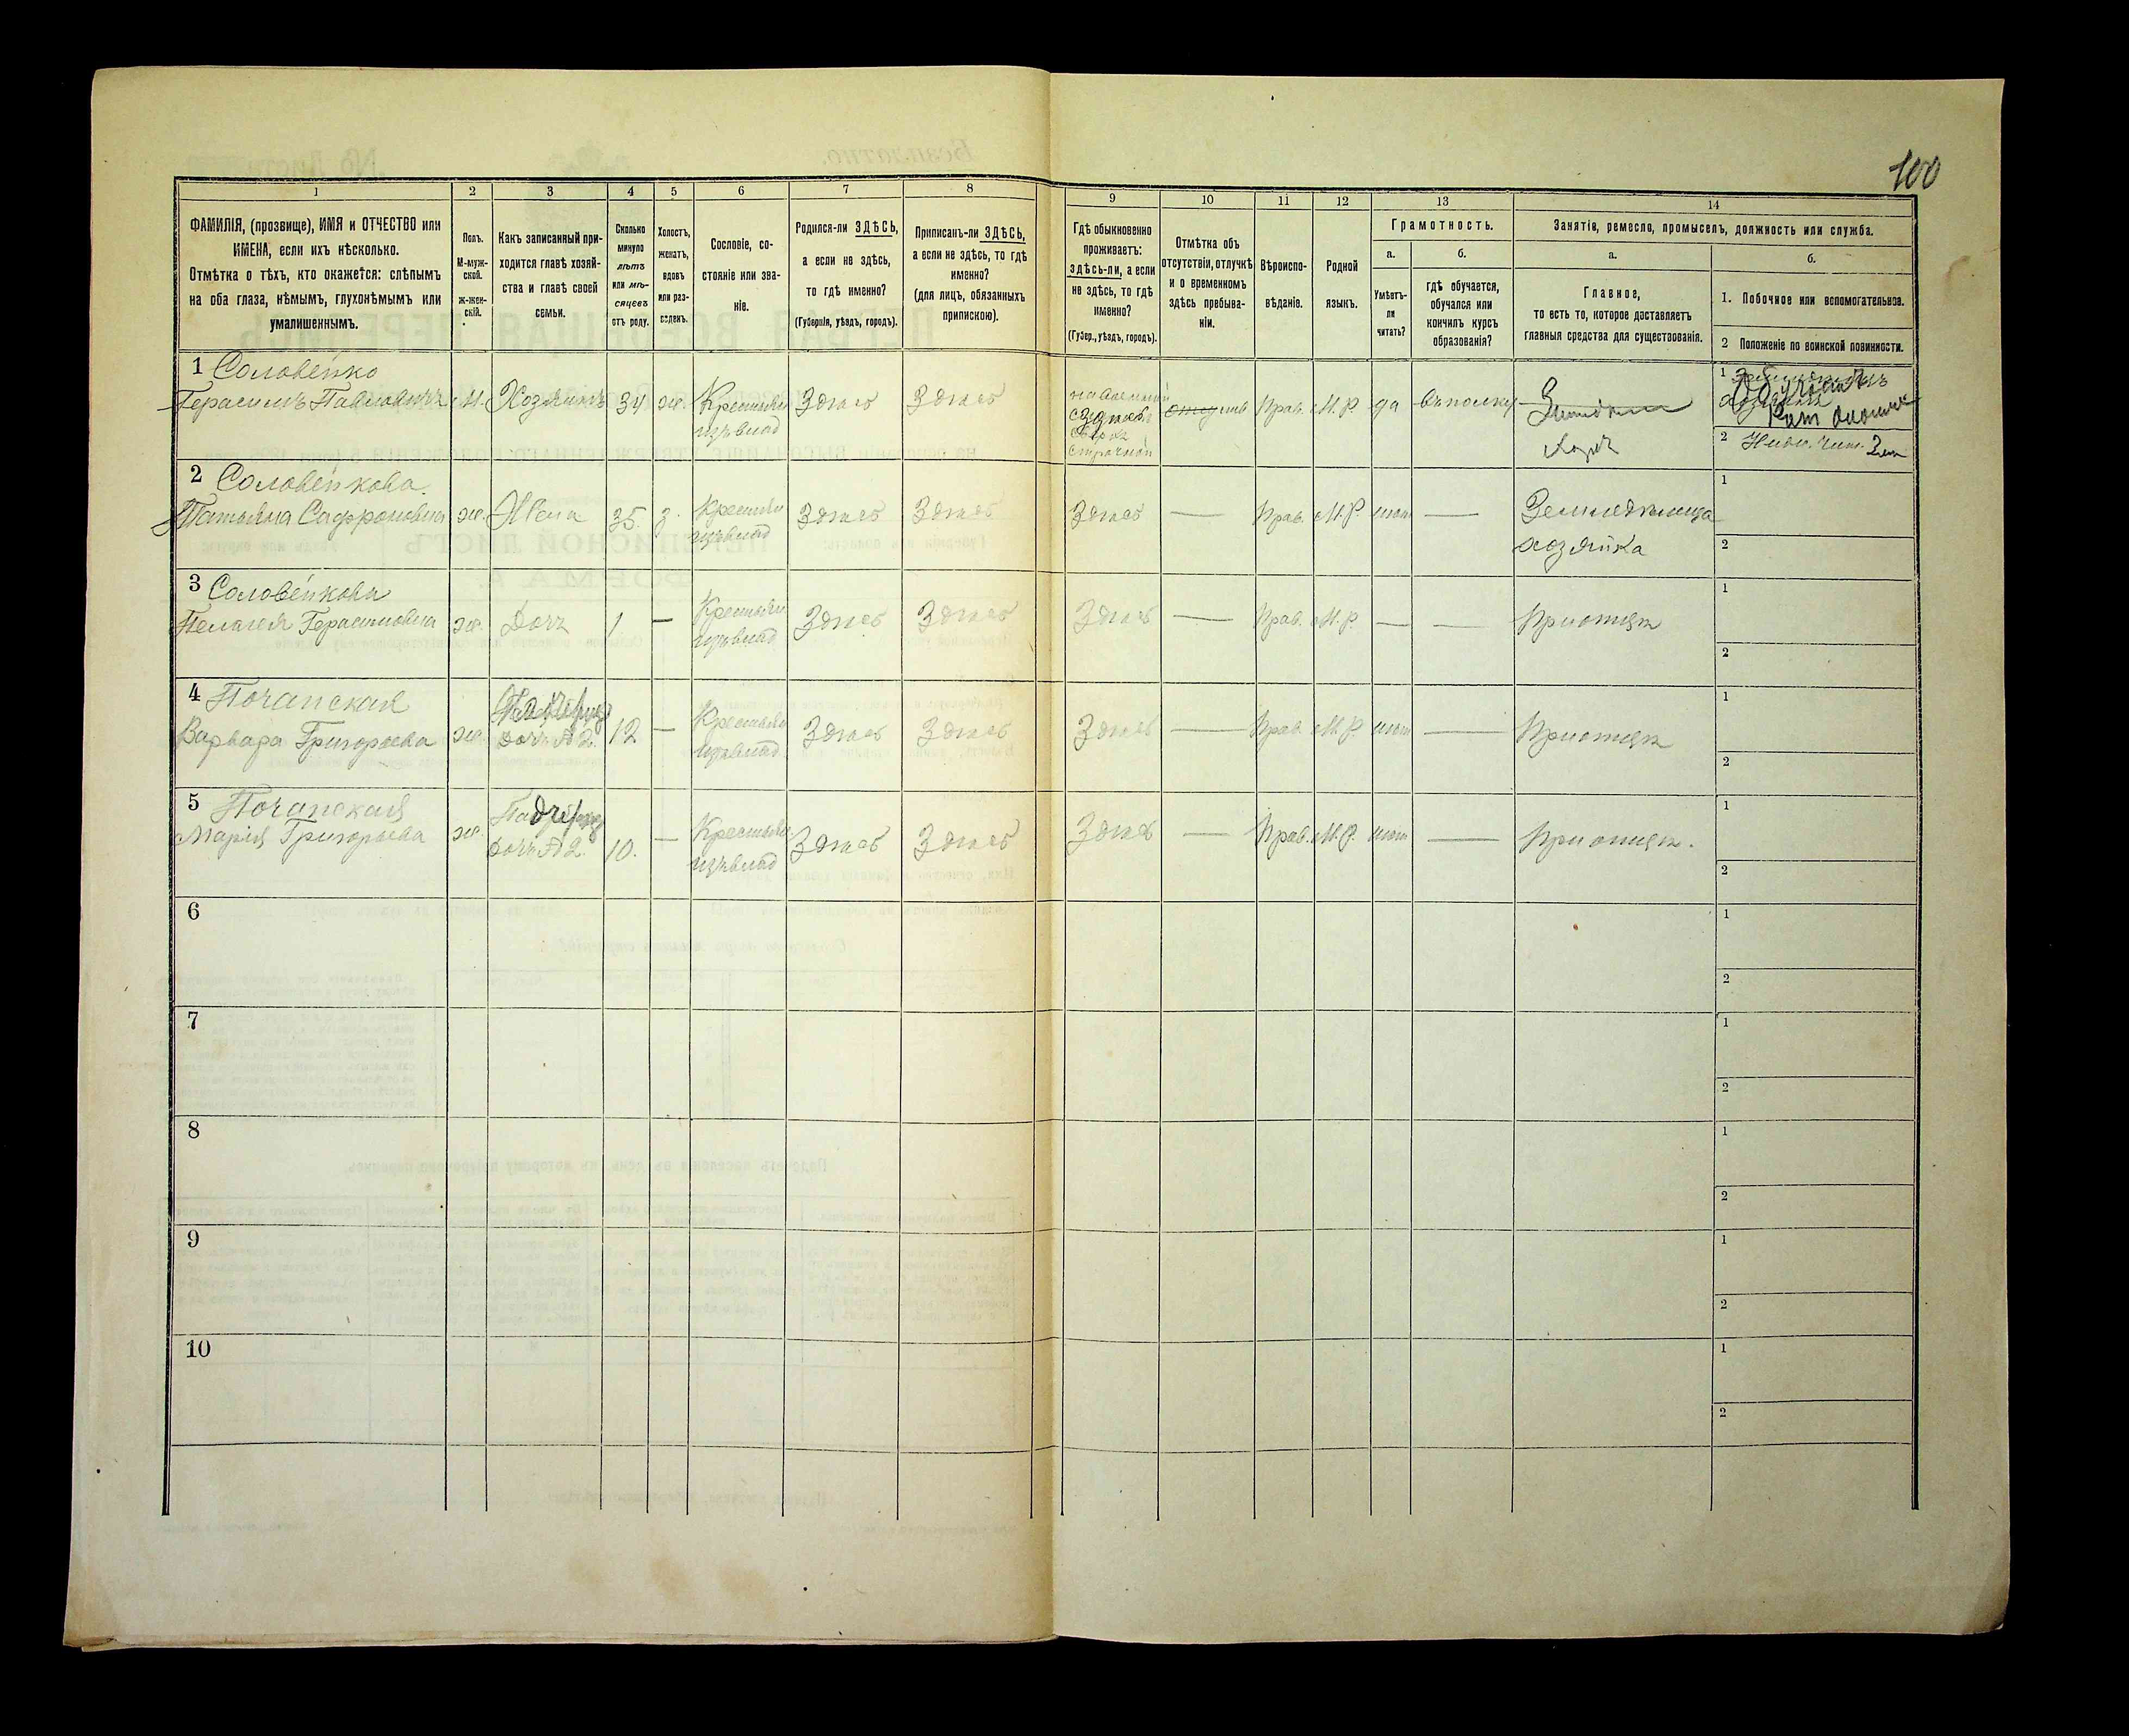 100
1
2
3
4
5
6
7
8
9
10
11
12
13
14
ФАМИЛІЯ, (прозвище), ИМЯ и ОТЧЕСТВО или
ИМЕНА, если ихъ нѣсколько.
Отмѣтка о тѣхъ, кто окажется: слѣпымъ
на оба глаза, нѣмымъ, глухонѣмымъ или
умалишеннымъ.
Полъ.
М-муж-
ской.
ж-жен-
скій.
Какъ записанный при-
ходится главѣ хозяй-
ства и главѣ своей
семьи.
Сколько
минуло
лѣтъ
или мѣ-
сяцевъ
отъ роду.
Холостъ,
женатъ,
вдовъ
или раз-
веденъ.
Сословіе, со-
стояніе или зва-
ніе.
Родился-ли ЗДѢСЬ,
а если не здѣсь,
то гдѣ именно?
(Губернія, уѣздъ, городъ).
Приписанъ-ли ЗДѢСЬ,
а если не здѣсь, то гдѣ
именно?
(для лицъ, обязанныхъ
припискою).
Гдѣ обыкновенно
проживаетъ:
здѣсь-ли, а если
не здѣсь, то гдѣ
именно?
(Губер., уѣздъ, городъ).
Отмѣтка объ
отсутствіи, отлучкѣ
и о временномъ
здѣсь пребыва-
ніи.
Вѣроиспо-
вѣданіе.
Родной
языкъ.
Грамотность.
а.
Умѣетъ-
ли
читать?
б.
гдѣ обучается,
обучался или
кончилъ курсъ
образованія?
Занятіе, ремесло, промыселъ, должность или служба.
а.
Главное,
то есть то, которое доставляетъ
главныя средства для существованія.
б.
1. Побочное или вспомогательное.
2 Положеніе по воинской повинности.
1 Соловейко
Герасимъ Павловичъ М. Хозяинъ 34 ж. Крестьян
изъ влад Здѣсь Здѣсь Прав. М.Р. да въ полку
1
2
2 Соловейкова
Татьяна Сафроновна ж. Жена 35. з. Крестьян
изъ влад Здѣсь Здѣсь Здѣсь — Прав. М.Р. нѣт — Земледѣлица
хозяйка
1
2
3 Соловейкова
Пелагея Герасимовна ж. Дочь 1 — Крестьян
изъ влад Здѣсь Здѣсь Здѣсь — Прав. М.Р. — — При отцѣ
1
2
4 Почапская
Варвара Григорьева ж. Падчерица
дочь № 2. 12 — Крестьян
изъ влад Здѣсь Здѣсь Здѣсь — Прав. М.Р. нѣт — При отцѣ
1
2
5 Почапская
Марія Григорьева ж. Падчерица
дочь № 2. 10. — Крестьян
изъ влад Здѣсь Здѣсь Здѣсь — Прав. М.Р. нѣт — При отцѣ.
1
2
6
1
2
7
1
2
8
1
2
9
1
2
10
1
2